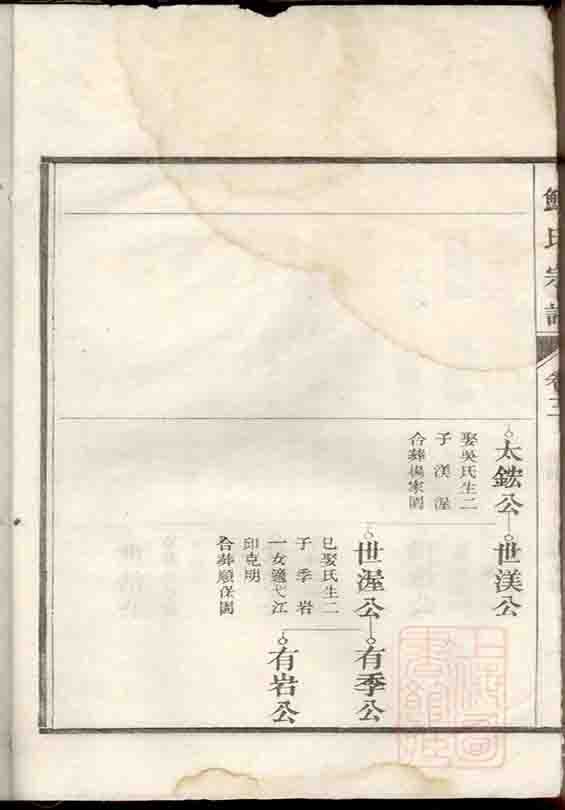 氏宗譜
卷三
太鋐公
娶吳氏生二
子渼渥
合葬楊家園
世渼公
世渥公
巳娶氏生二
子季岩
一女適弋江
印克明
合葬順保園
有季公
有岩公
上海圖
書館藏